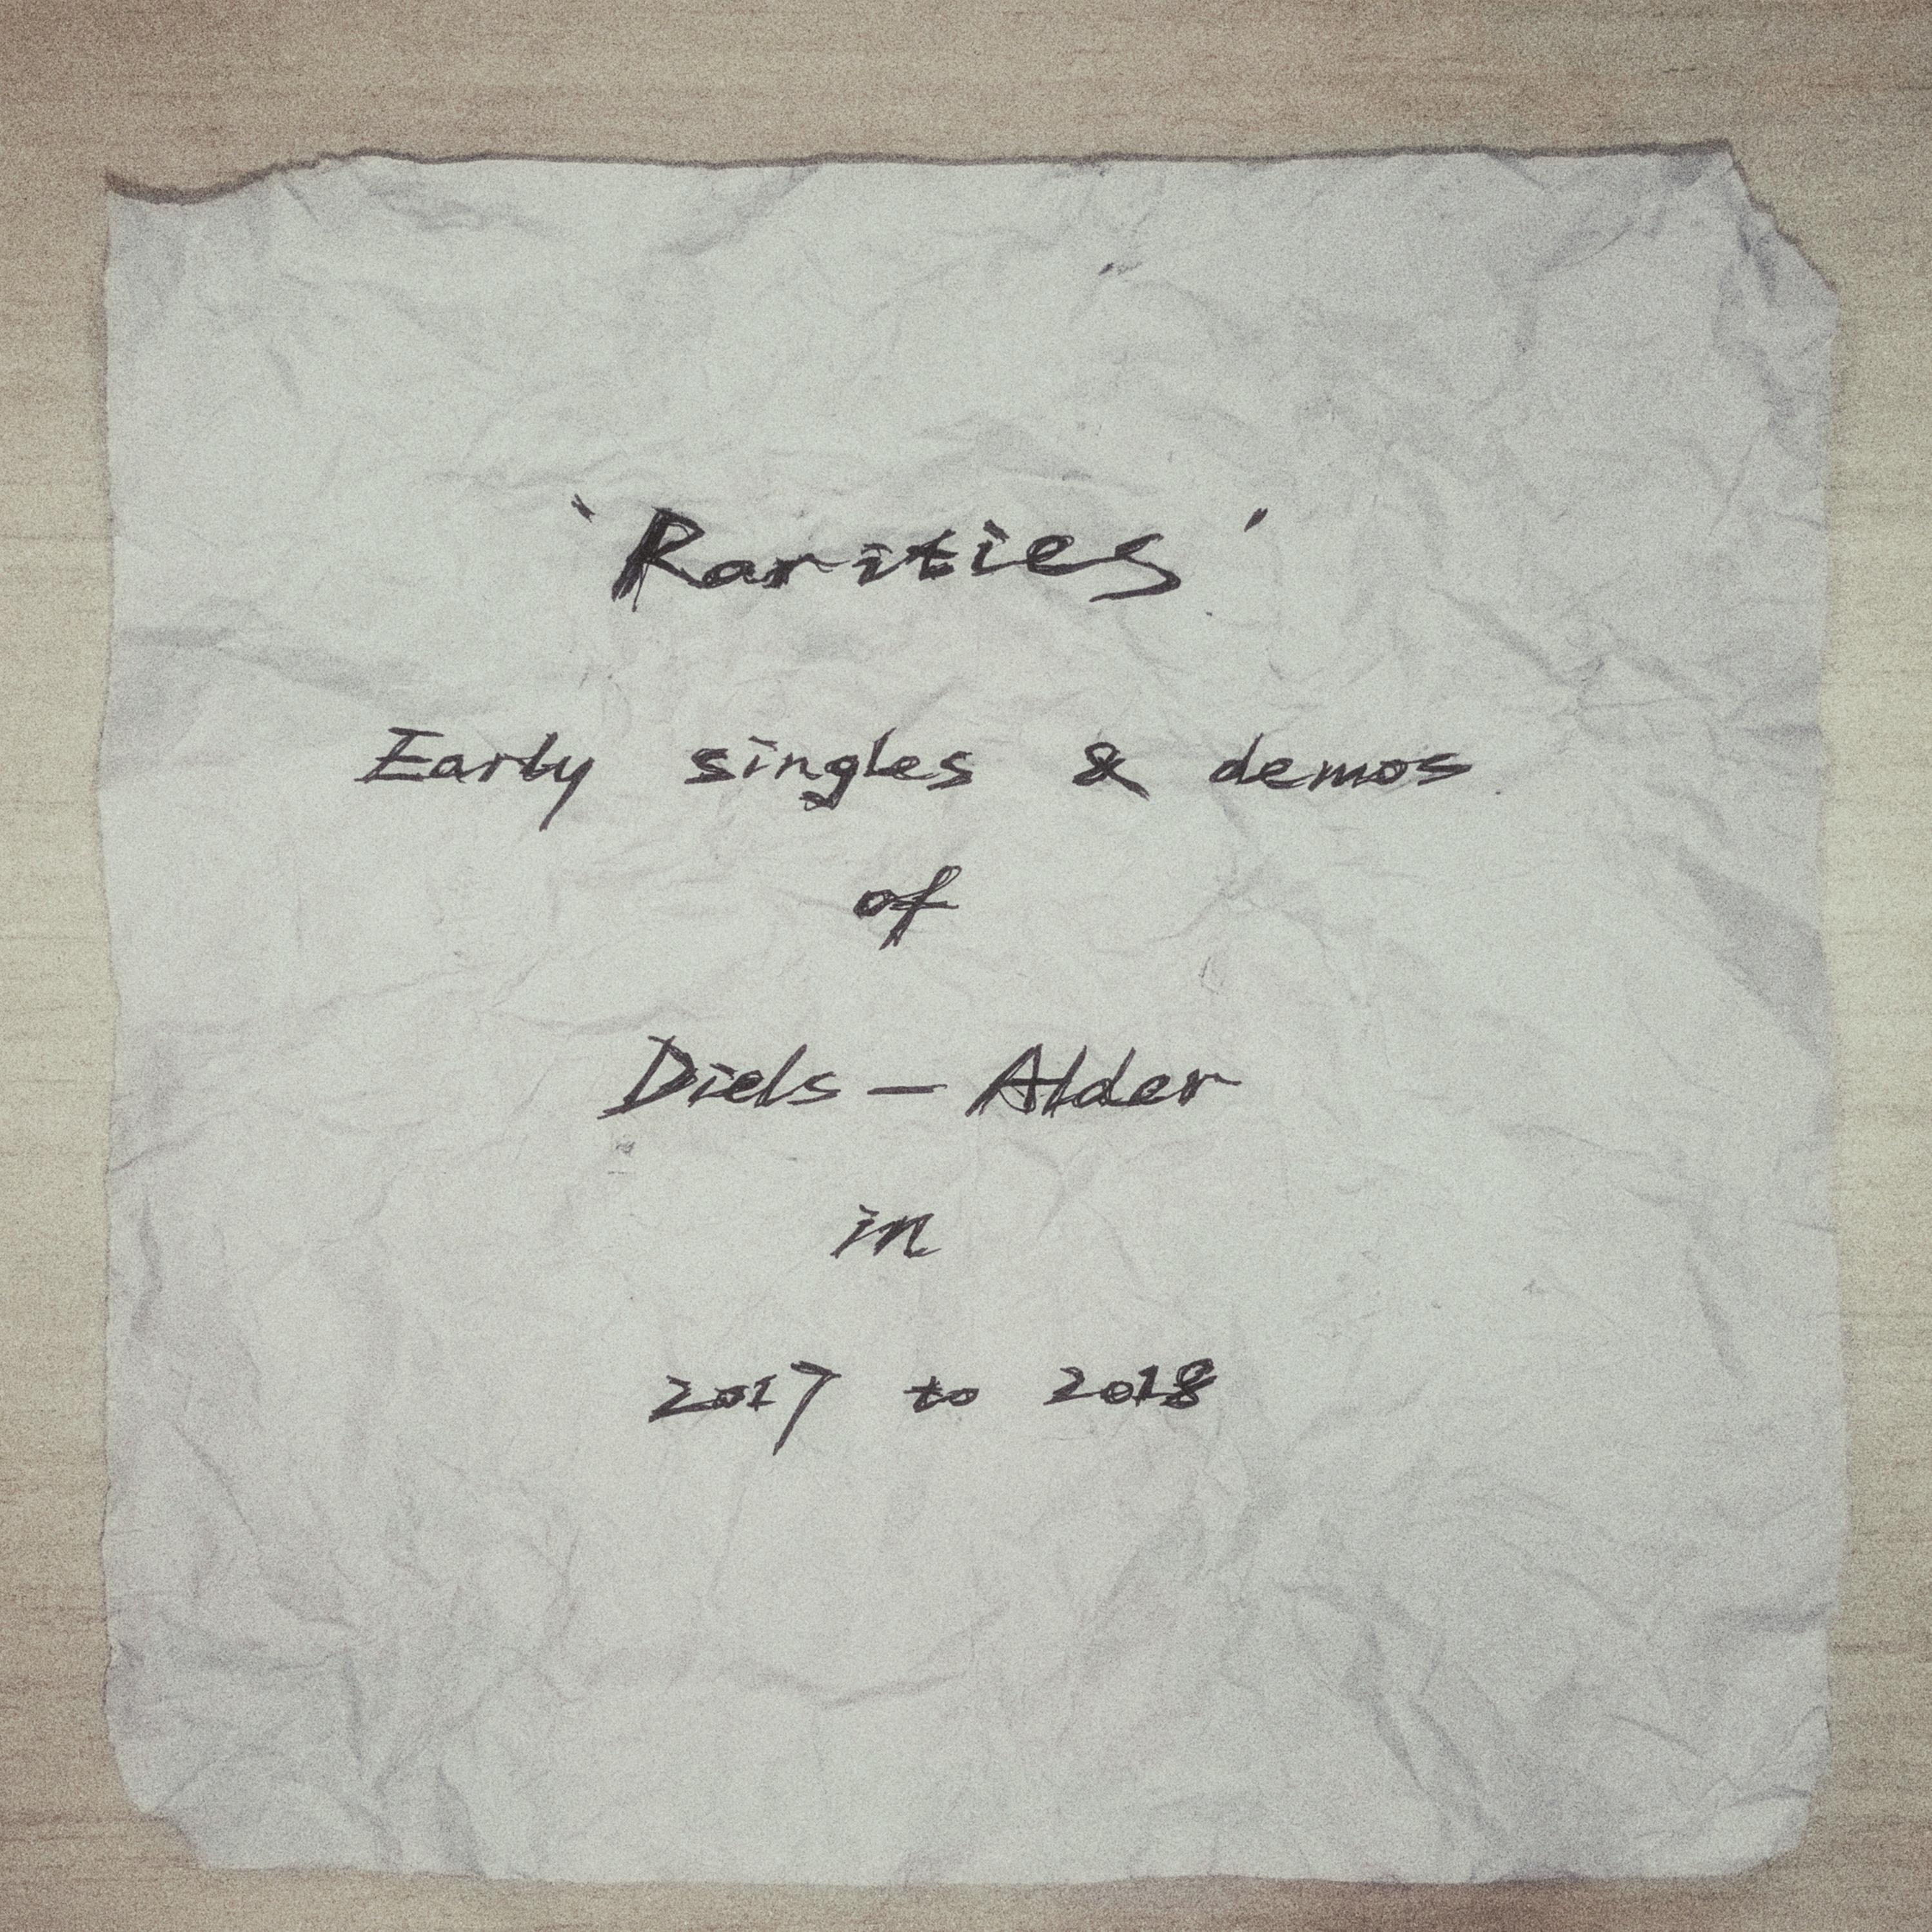 'Rarities'
Early singles & demos
of
Diels - Alder
in
2017 to 2018